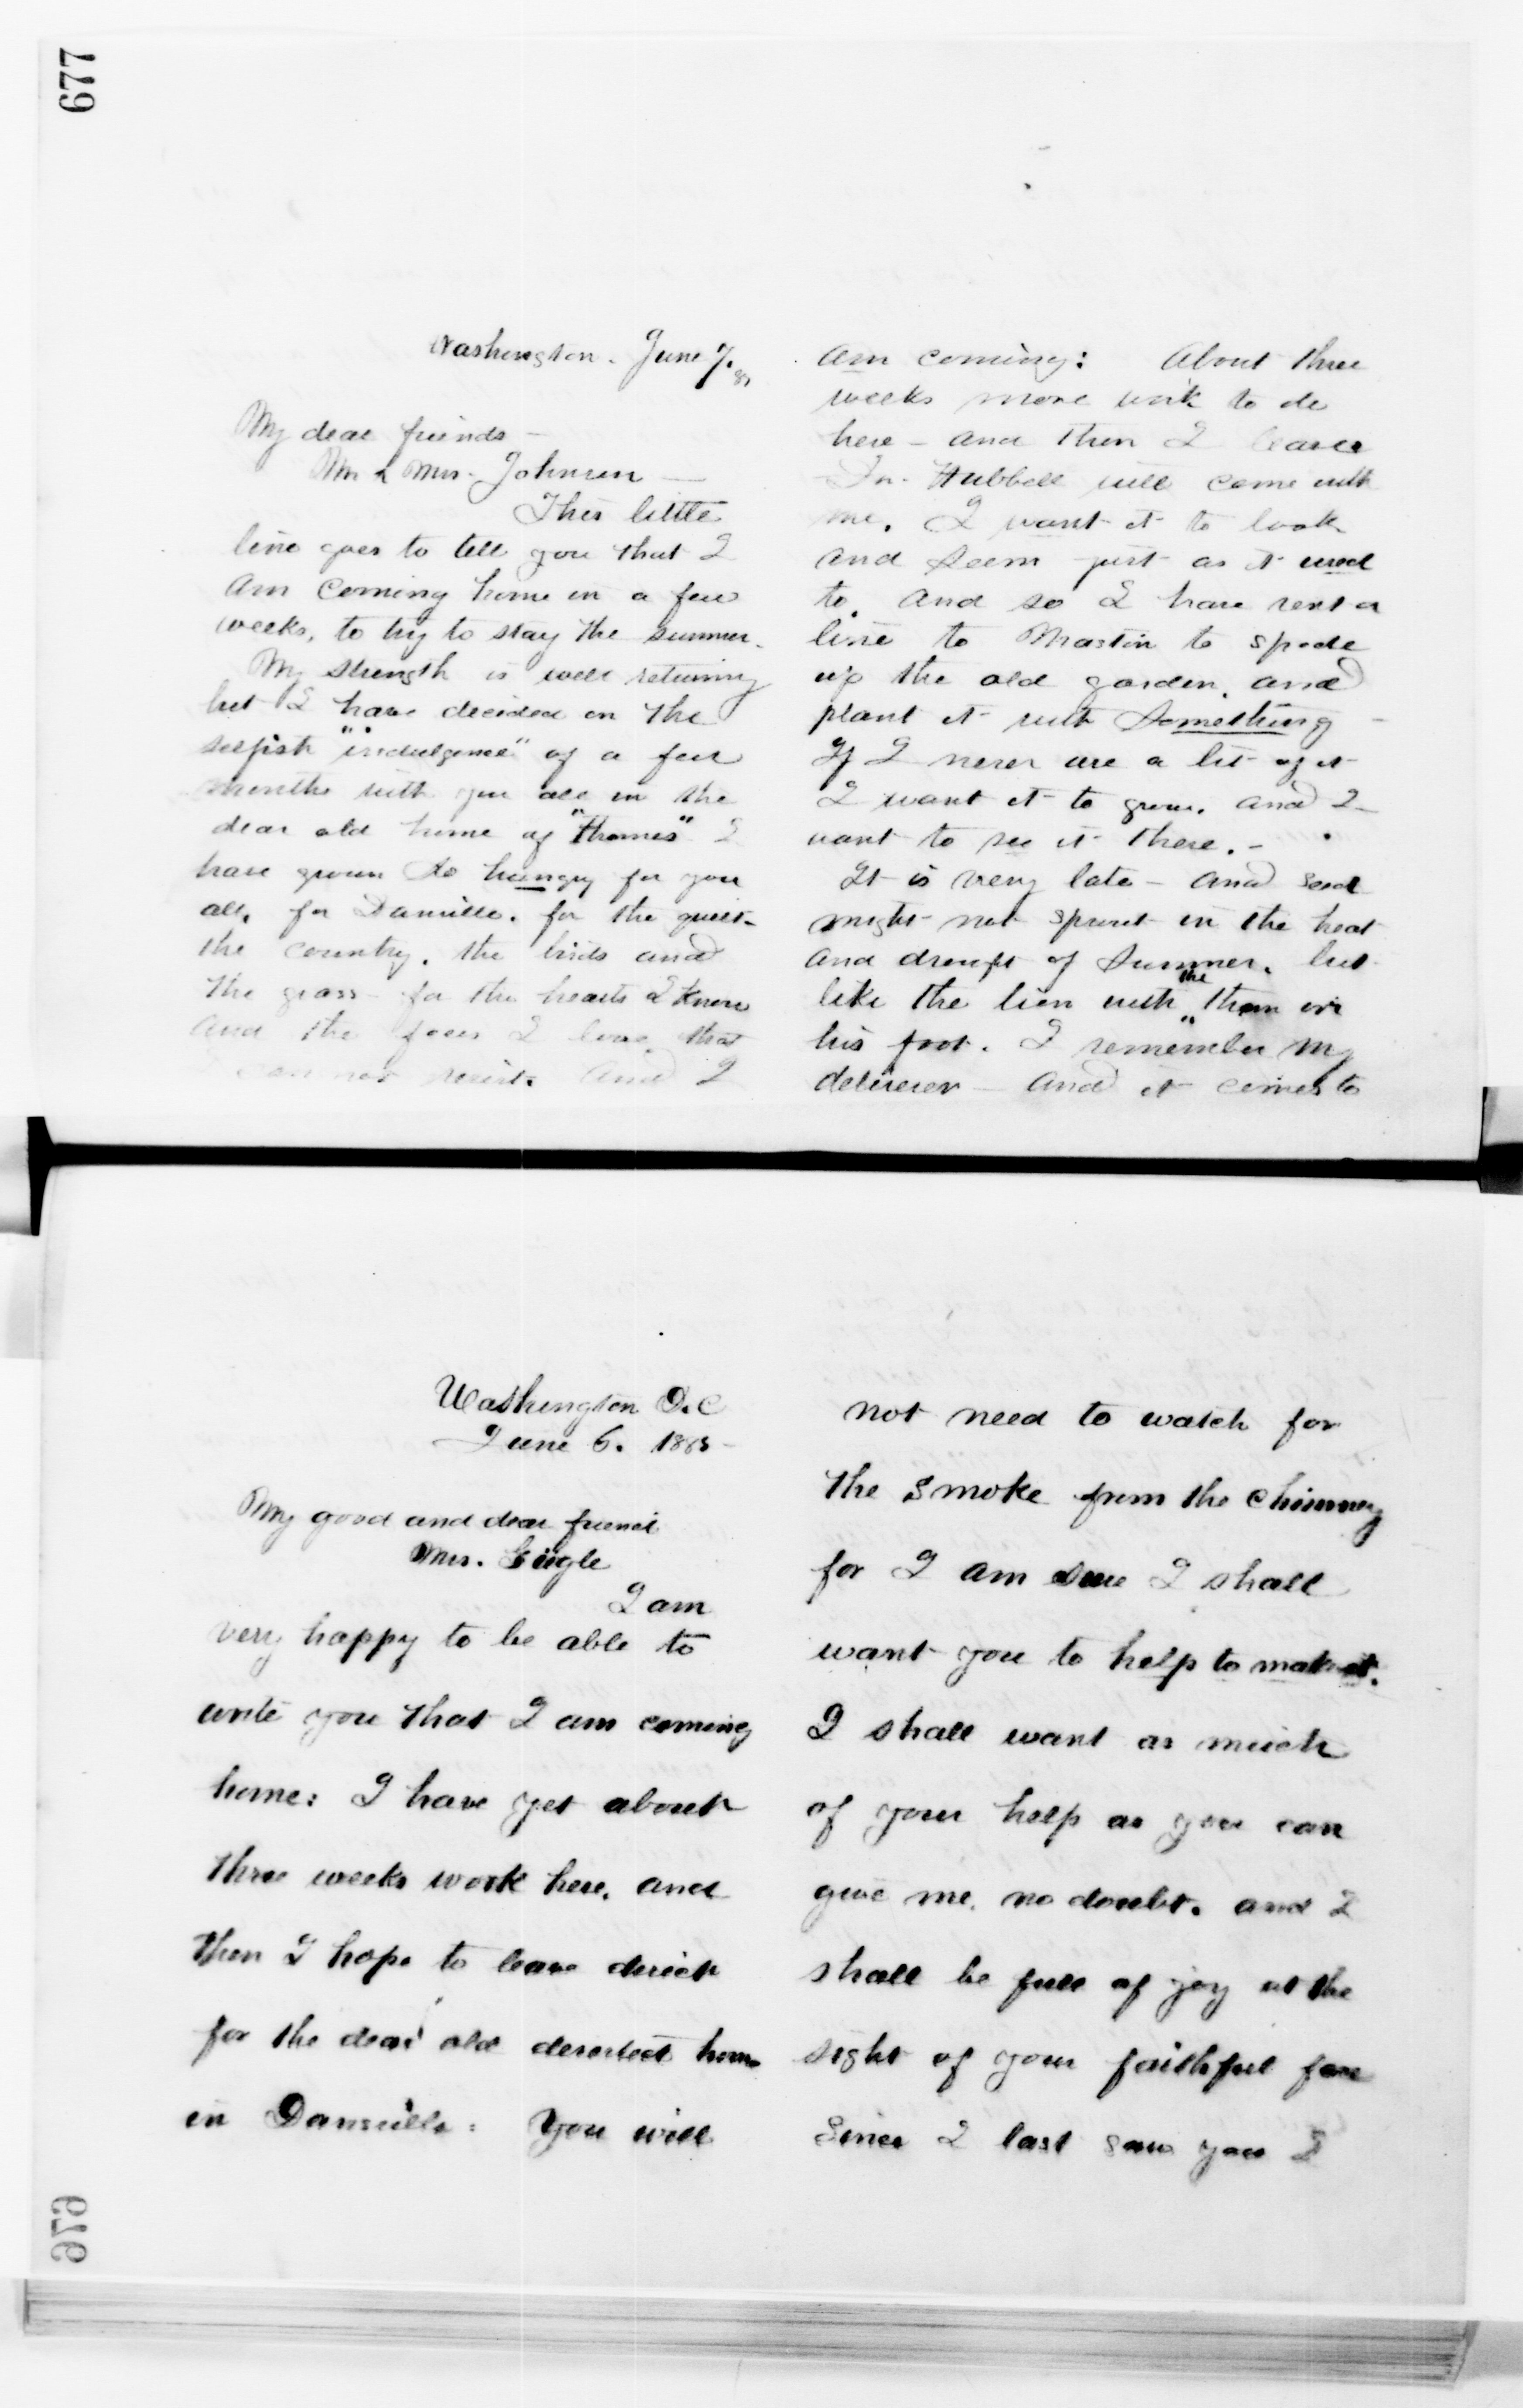 677
Washington. June 7.
My dear friends -
Mr & Mrs. Johnson -
This little
line goes to tell you that I
am coming home in a few
weeks, to try to stay the summer.
My strength is well returning
but I have decided on the
selfish "indulgence" of a few
months with you all in the
dear old home of "
have grown so hungry for you
all, for Dansville. for the quiet-
the country. the birds and
the grass - for the hearts I know
and the faces I love, that
can not resist. and I
am coming: About three
weeks more work to do
here - and then I leave
Dr. Hubbell will come with
me. I want it to look
and seem just as it used
to. and so I have sent a
line to Martin to spade
up the old garden. and
plant it with Something -
If I never use a bit of it
I want it to grow. and I
want to see it there. -
It is very late - and seed
might not sprout in the heat
and drought of Summer. but
like the lion with the thorn in
his foot. I remember my
deliverer - and it comes to
Washington D.C
June 6. 188
My good and dear friend
Mrs.
I am
very happy to be able to
write you that I am coming
home: I have yet about
three weeks work here. and
then I hope to leave direct
for the dear old deserted home
in Dansville: You will
not need to watch for
the smoke from the chimney
for I am sure I shall
want you to help to make it.
I shall want as much
of your help as you can
give me. no doubt. and I
shall be full of joy at the
sight of your faithful face
Since I last saw you I
676